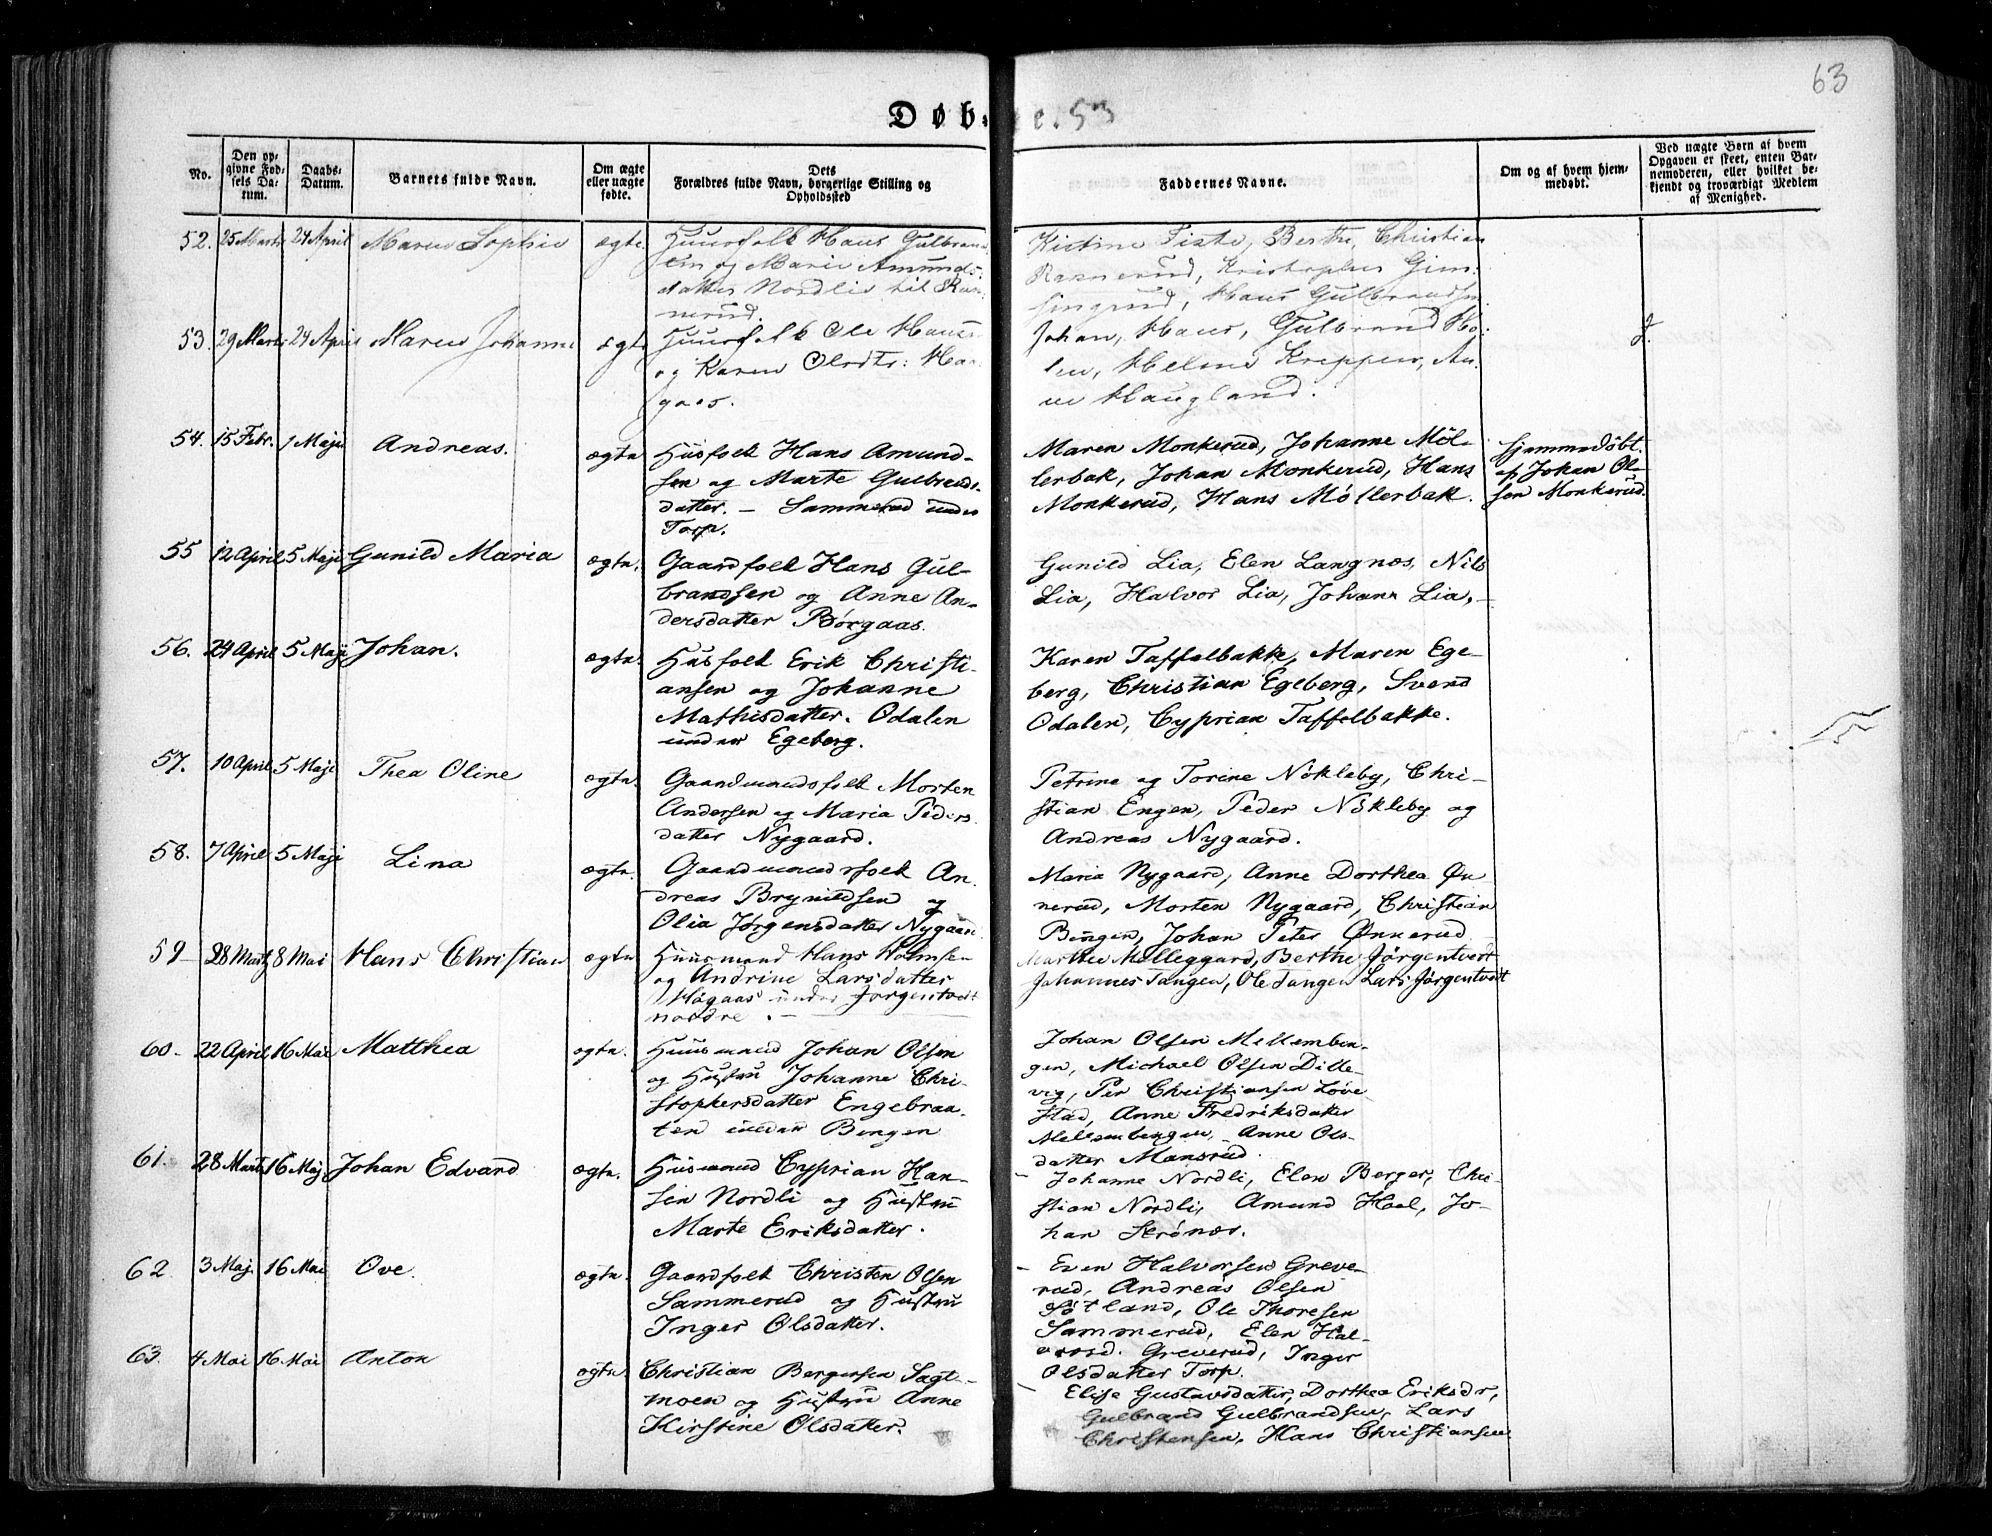 63
Døbte. 53
No.
Den opgivne Fødsels Datum.
Daabs-Datum.
Barnets fulde Navn.
Om ægte eller uægte fødte.
Dets Forældres fulde Navn, borgerlige Stilling og Opholdssted
Faddernes Navne.
Om og af hvem hjemmedøbt.
Ved uægte Børn af hvem Opgaven er skeet, enten Barnemoderen, eller hvilket bekjendt og troværdigt Medlem af Menighed.
52. 25 Marts 24 April Maren Sophie ægte Huusfolk Hans Gulbrand-
sen og Marie Amunds-
datter Nordlie til Ran-
nerud.
Kistine Berthe, Christian
Rannerud, Kristopher Gim-
singrud, Hans Gulbrandsen
53. 29 Marts 24 April Maren Johanne ægte Huusfolk Ole Hansen
og Karen Olsdtr: Haa-
gaas.
Johan, Hans, Gulbrand Ho-
len, Helene Kreppen, An-
ne Haugland.
54. 15 Febr. 1 Maji Andreas. ægte Husfolk Hans Amund-
sen og Marte Gulbrands-
datter. – Sammerud under
Torp.
Maren Monkerud, Johanne Möl-
lerbak, Johan Monkerud, Hans
Monkerud, Hans Møllerbak.
Hjemmedöbt
af Johan Ol-
sen Monkerud.
55 12 April 5 Maji Gunild Maria ægte. Gaardfolk Hans Gul-
brandsen og Anne An-
dersdatter Börgaas.
Gunild Lia, Elen Langnæs, Nils
Lia, Halvor Lia, Johann Lia. –
56. 24 April 5 Maji Johan. ægte. Husfolk Erik Christi-
ansen og Johanne
Mathisdatter. Odalen
under Egeberg.
Karen Taffelbakke, Maren Ege-
berg, Christian Egeberg, Svend
Odalen, Cyprian Taffelbakke.
57. 10 April 5 Maji Thea Oline ægte. Gaardmandsfolk Morten
Andersen og Maria Peders
datter Nygaard.
Petrine og Torine Nökleby, Chri-
stian Engen, Peder Nökleby og
Andreas Nygaard.
58. 7 April 5 Maji Lina ægte. Gaardmandsfolk An-
dreas Brynildsen og
Olia Jørgensdatter Nygaard
Maria Nygaard, Anne Dorthea Øn-
nerud, Morten Nygaard, Christian
Bingen, Johan Peter Ønnerud
59 28 Marts 8 Mai Hans Christian ægte Huusmand Hans Holmsen
og Andrine Larsdatter
Hägaas under Jørgentvedt
nordre. –
Marthe Melleggard, Berthe Jörgentvedt
Johannes Tangen, Ole Tangen Lars Jörgentvedt
60 22 April 16 Mai Matthea ægte. Huusmand Johan Olsen
og Hustru Johanne Chri-
stophersdatter Engebraa-
ten under Bingen
Johan Olsen Mellembin-
gen, Michael Olsen Dille-
vig, Per Christiansen Løve
stad, Anne Fredriksdatter
Mellembingen, Anne Ols-
datter Mansrud.
61. 28 Marts 16 Maj Johan Edvard ægte. Husmand Cyprian Han-
sen Nordli og Hustru
Marte Eriksdatter.
– Johanne Nordli, Elen Berger, Chri-
stian Nordli, Amund Hoel, Jo-
han Strönæs.
62 3 Maj. 16 Mai Ove. ægte. Gaardfolk Christen Olsen
Sammerud og Hustru
Inger Olsdatter.
– Even Halvorsen Greve-
rud, Andreas Olsen
Sötland, Ole Thoresen
Sammerud, Elen Hal-
vorsd. Greverud, Inger
Olsdatter Torp.
63. 4 Mai 16 Mai Anton ægte. Christian Bergersen Sagt-
moen og Hustru Anne
Kirstine Olsdatter.
– Elise Gustavsdatter, Dorthea Eriksdr,
Gulbrand Gulbrandsen, Lars
Christensen, Hans Christiansen